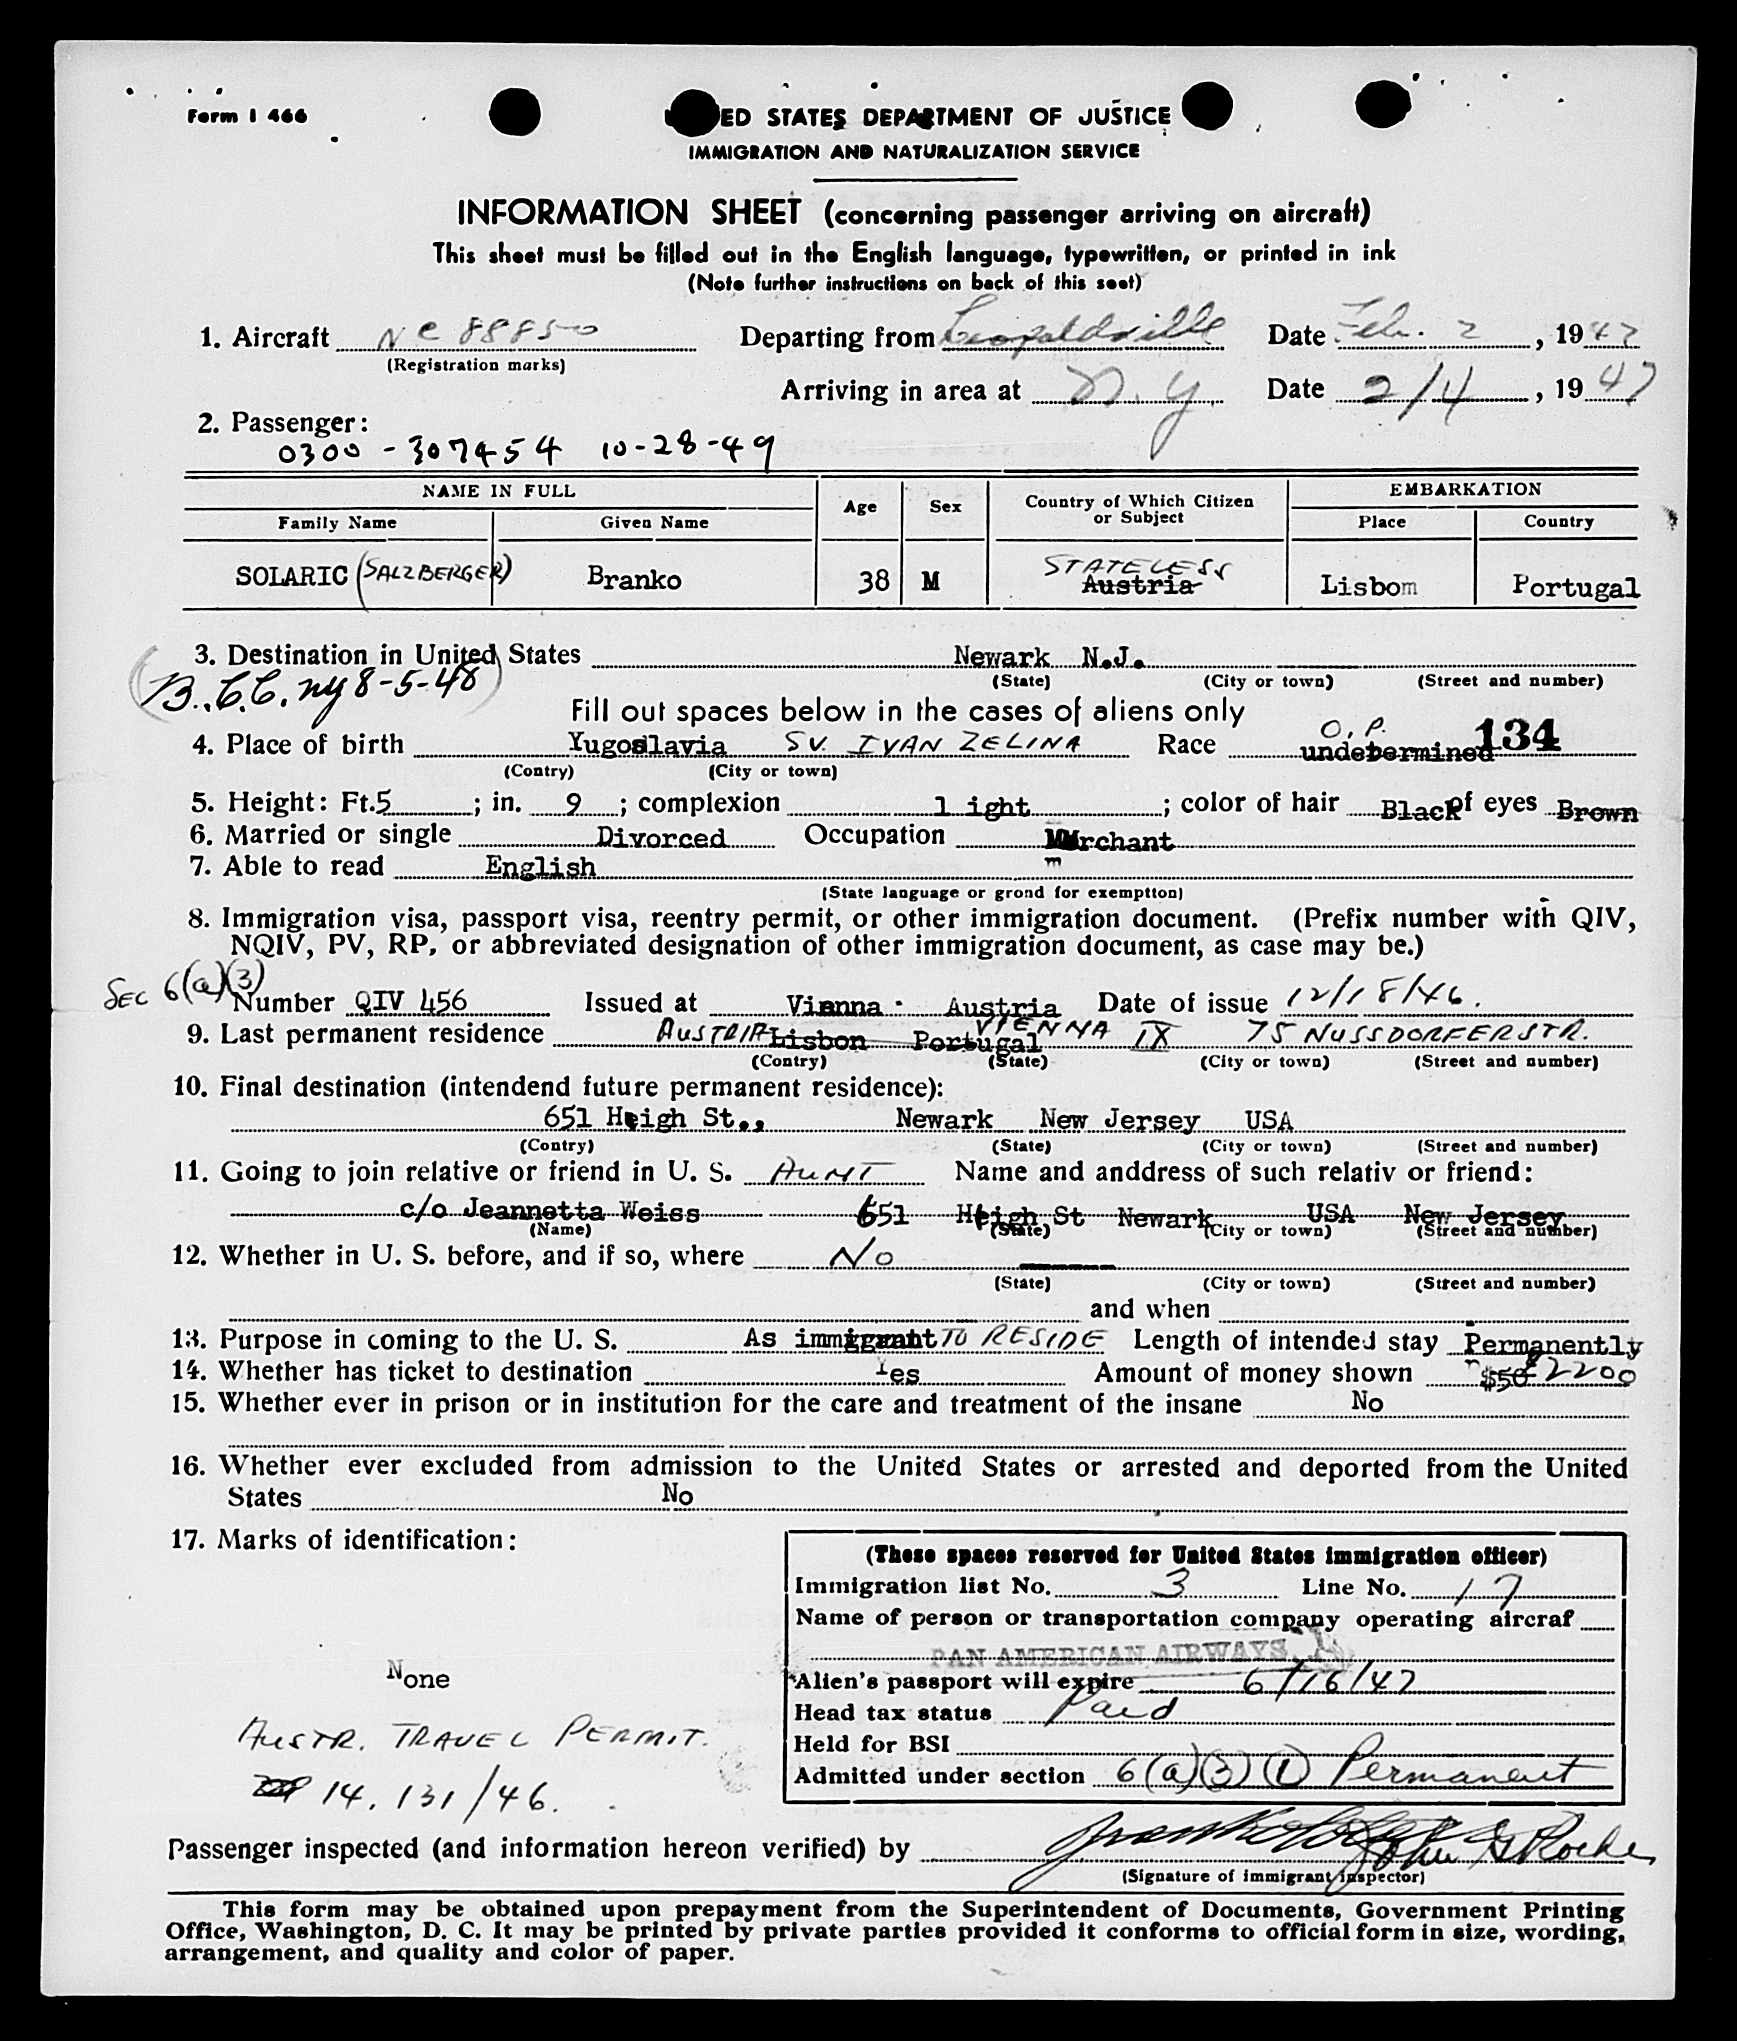 Form I 466
ED STATES DEPARTMENT OF JUSTICE
IMMIGRATION AND NATURALIZATION SERVICE
INFORMATION SHEET (concerning passenger arriving on aircraft)
This sheet must be filled out in the English language, typewritten, or printed in ink
(Note further instructions on back of this seet)
1. Aircraft NC 88850 Departing from Leopoldville Date Feb. 2, 1947
(Registration marks)
Arriving in area at N.Y. Date 2/4, 1947
2. Passenger:
0300 - 307454 10-28-49
NAME IN FULL Age Sex Country of Which Citizen or Subject EMBARKATION
Family Name Given Name Place Country
SOLARIC (SALZBERGER) Branko 38 M STATELESS Austria Lisbom Portugal
3. Destination in United States Newark N.J.
(State) (City or town) (Street and number)
(B.C.C. ny 8-5-48)
Fill out spaces below in the cases of aliens only
4. Place of birth Yugoslavia SV. IVAN ZELINA Race O.P. undetermined 134
(Contry) (City or town)
5. Height: Ft. 5; in. 9; complexion light; color of hair Black of eyes Brown
6. Married or single Divorced Occupation Mrchant
7. Able to read English
(State language or grond for exemption)
8. Immigration visa, passport visa, reentry permit, or other immigration document. (Prefix number with QIV,
NQIV, PV, RP, or abbreviated designation of other immigration document, as case may be.)
SEC 6(a)(3)
Number QIV 456 Issued at Vienna Austria Date of issue 12/18/46.
9. Last permanent residence AUSTRIA Lisbon Portugal VIENNA IX 75 NUSSDORFERSTR.
(Contry) (State) (City or town) (Street and number)
10. Final destination (intendend future permanent residence):
651 Heigh St., Newark New Jersey USA
(Contry) (State) (City or town) (Street and number)
11. Going to join relative or friend in U. S. AUNT Name and anddress of such relativ or friend:
c/o Jeannetta Weiss 651 Heigh St Newark USA New Jersey
(Name) (State) (City or town) (Street and number)
12. Whether in U. S. before, and if so, where No
(State) (City or town) (Street and number)
and when
13. Purpose in coming to the U. S. As immigrant TO RESIDE Length of intended stay Permanently
14. Whether has ticket to destination Yes Amount of money shown $50 $2200
15. Whether ever in prison or in institution for the care and treatment of the insane No
16. Whether ever excluded from admission to the United States or arrested and deported from the United
States No
17. Marks of identification:
None
AUSTR. TRAVEL PERMIT.
14.131/46.
(These spaces reserved for United States immigration officer)
Immigration list No. 3 Line No. 17
Name of person or transportation company operating aircraf
PAN AMERICAN AIRWAYS
Alien's passport will expire 6/16/47
Head tax status Paid
Held for BSI
Admitted under section 6(a)(3)(1) Permanent
Passenger inspected (and information hereon verified) by John G Roche
(Signature of immigrant inspector)
This form may be obtained upon prepayment from the Superintendent of Documents, Government Printing
Office, Washington, D. C. It may be printed by private parties provided it conforms to official form in size, wording,
arrangement, and quality and color of paper.